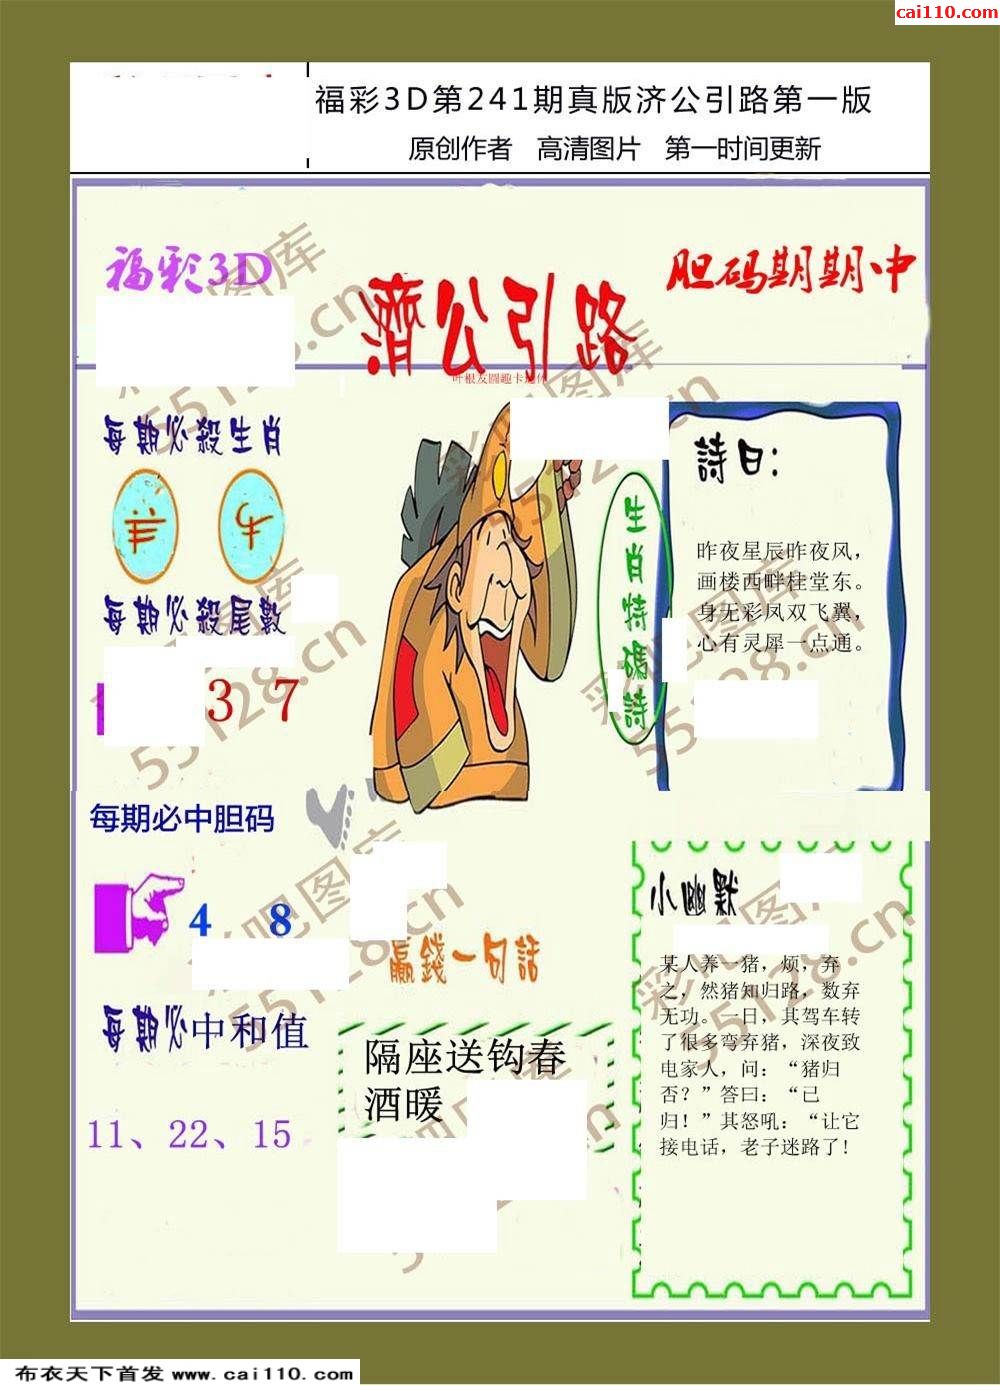 cai110.com
福彩3D第241期真版济公引路第一版
原创作者 高清图片 第一时间更新
福彩3D
濟公引路
胆码期期中
叶根友圆趣卡通体
每期必殺生肖
羊 牛
每期必殺尾數
3 7
每期必中胆码
4 8
每期必中和值
11、22、15
生肖特碼詩
詩曰：
昨夜星辰昨夜风，
画楼西畔桂堂东。
身无彩凤双飞翼，
心有灵犀一点通。
赢錢一句話
隔座送钩春
酒暖
小幽默
某人养一猪，烦，弃
之，然猪知归路，数弃
无功。一日，其驾车转
了很多弯弃猪，深夜致
电家人，问：“猪归
否？”答曰：“已
归！”其怒吼：“让它
接电话，老子迷路了!
彩吧图库
55128.cn
彩吧图库
55128.cn
彩吧图库
55128.cn
彩吧图库
55128.cn
彩吧图库
55128.cn
布衣天下首发 www.cai110.com